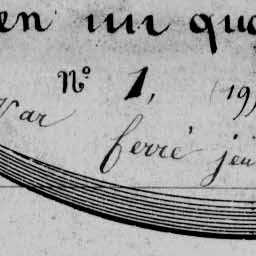 en un qua
Nº 1, (19
Var ferré jeu